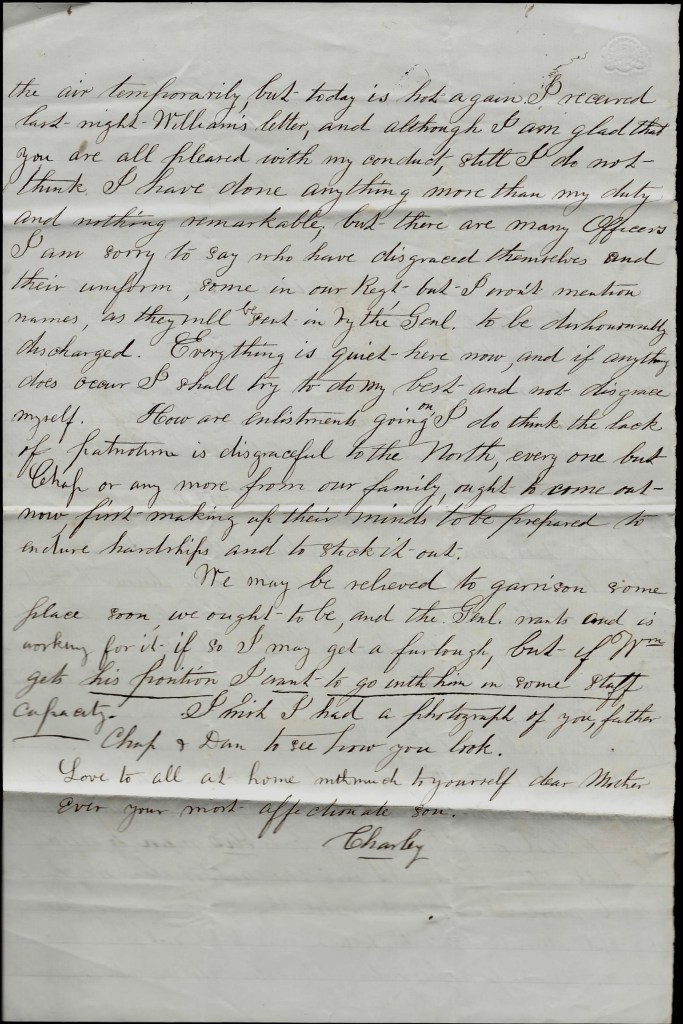 the air temporarily, but today is hot again. I received
last night William's letter, and although I am glad that
you are all pleased with my conduct, still I do not
think I have done anything more than my duty
and nothing remarkable, but there are many Officers
I am sorry to say who have disgraced themselves and
their uniform, some in our Regt. but I won't mention
names, as they will be sent in by the Genl. to be dishonourably
discharged. Everything is quiet here now, and if anything
does occur I shall try to do my best and not disgrace
myself. How are enlistments going on, I do think the lack
of patriotism is disgraceful to the North, every one but
Chap or any more from our family, ought to come out
now first making up their minds to be prepared to
endure hardships and to stick it out.
We may be relieved to garrison some
place soon, we ought to be, and the Genl. wants and is
working for it if so I may get a furlough, but if Wm
gets his position I want to go with him in some staff
capacity. I wish I had a photograph of you, father
Chap & Dan to see how you look.
Love to all at home with much to yourself dear Mother
Ever your most affectionate son.
Charley